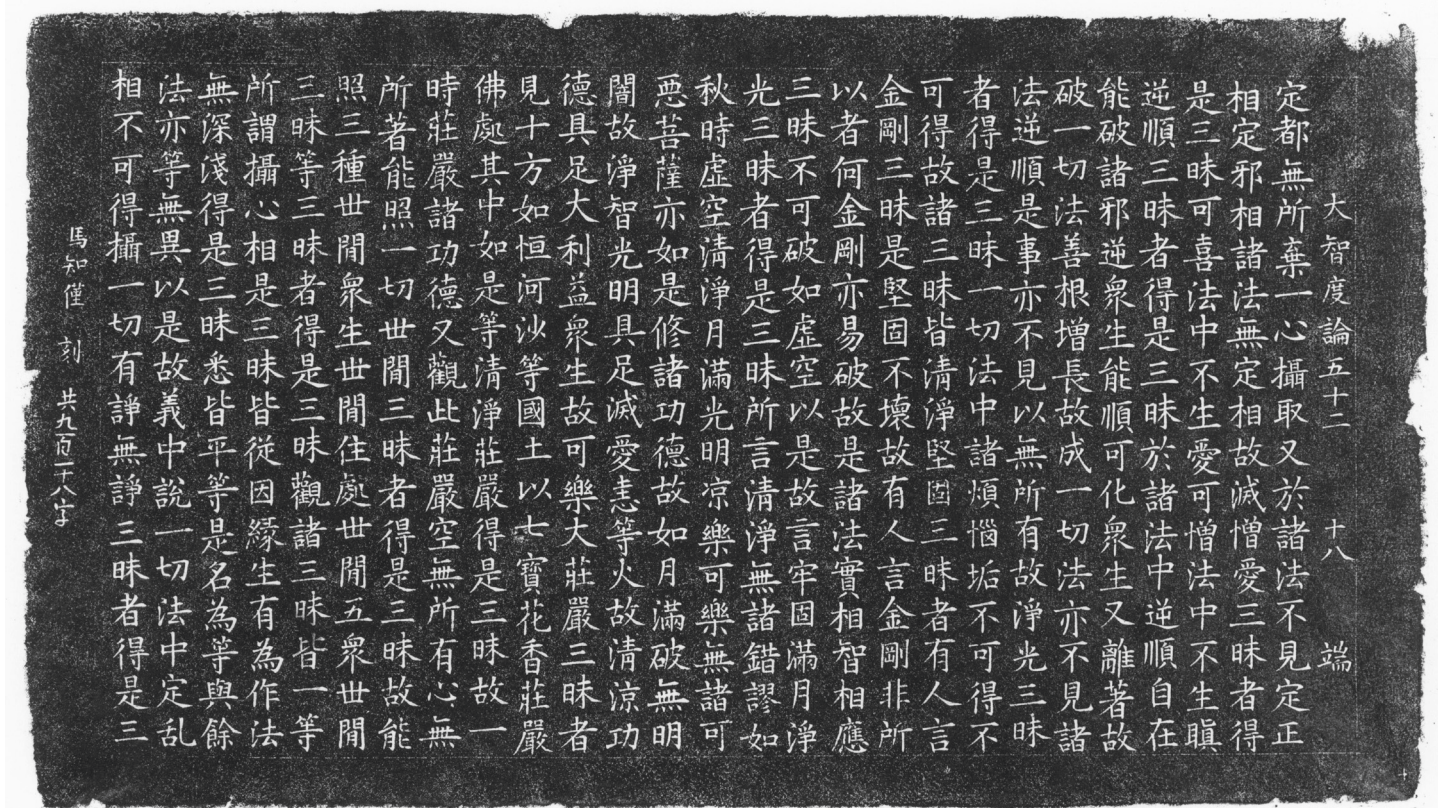 大智度論五十二 十八 端
定都無所棄一心攝取又於諸法不見定正
相定邪相諸法無定相故滅憎愛三昧者得
是三昧可喜法中不生愛可憎法中不生瞋
逆順三昧者得是三昧於諸法中逆順自在
能破諸邪逆衆生能順可化衆生又離著故
破一切法善根增長故成一切法亦不見諸
法逆順是事亦不見以無所有故淨光三昧
者得是三昧一切法中諸煩惱垢不可得不
可得故諸三昧皆清淨堅固三昧者有人言
金剛三昧是堅固不壞故有人言金剛非所
以者何金剛亦易破故是諸法實相智相應
三昧不可破如虛空以是故言牢固滿月淨
光三昧者得是三昧所言清淨無諸錯謬如
秋時虛空清淨月滿光明凉樂可樂無諸可
惡菩薩亦如是修諸功德故如月滿破無明
闇故淨智光明具足滅愛恚等火故清涼功
德具足大利益衆生故可樂大莊嚴三昧者
見十方如恒河沙等國土以七寶花香莊嚴
佛處其中如是等清淨莊嚴得是三昧故一
時莊嚴諸功德又觀此莊嚴空無所有心無
所著能照一切世閒三昧者得是三昧故能
照三種世閒衆生世閒住處世閒五衆世閒
三昧等三昧者得是三昧觀諸三昧皆一等
所謂攝心相是三昧皆從因緣生有為作法
無深淺得是三昧悉皆平等是名為等與餘
法亦等無異以是故義中說一切法中定乱
相不可得攝一切有諍無諍三昧者得是三
馬知僅 刻 共九百一十八字